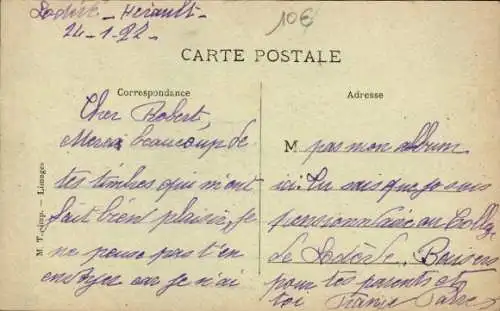 Lodève - Hérault -
24-1-22-
10€
CARTE POSTALE
Correspondance
Adresse
Cher Robert,
Merci beaucoup de
tes timbres qui m'ont
fait bien plaisir, je
ne pouvo pas t'en
envoyer car je n'ai
M pas mon album
ici. Tu sais que je suis
pensionnaire au Collg.
de Lodève, Baisers
pour tes parents et
toi
M. T. imp. - Limoges